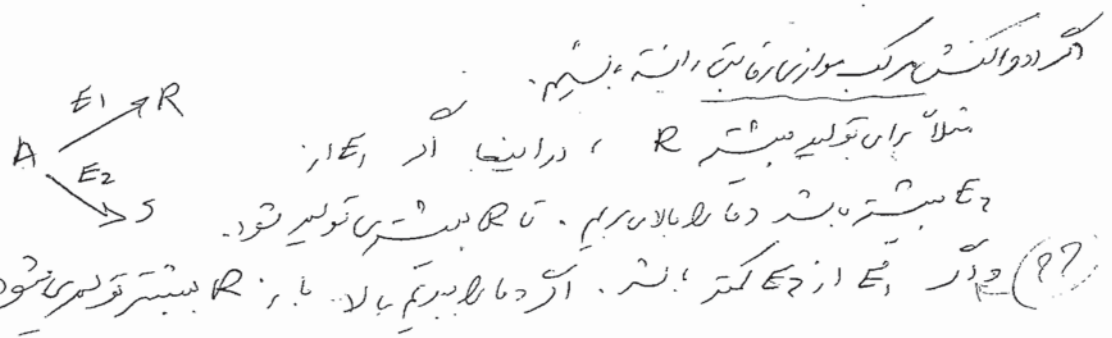 اگر دو واکنش مرکب موازی رقابتی داشته باشیم.
مثلاً برای تولید بیشتر R ، در اینجا اگر E1 از
E2 بیشتر باشد دما را بالا می‌بریم. تا R بیشتری تولید شود.
(??) و اگر E1 از E2 کمتر باشد. اگر دما را ببریم بالا. باز R بیشتر تولید می‌شود
A
E1
R
E2
S